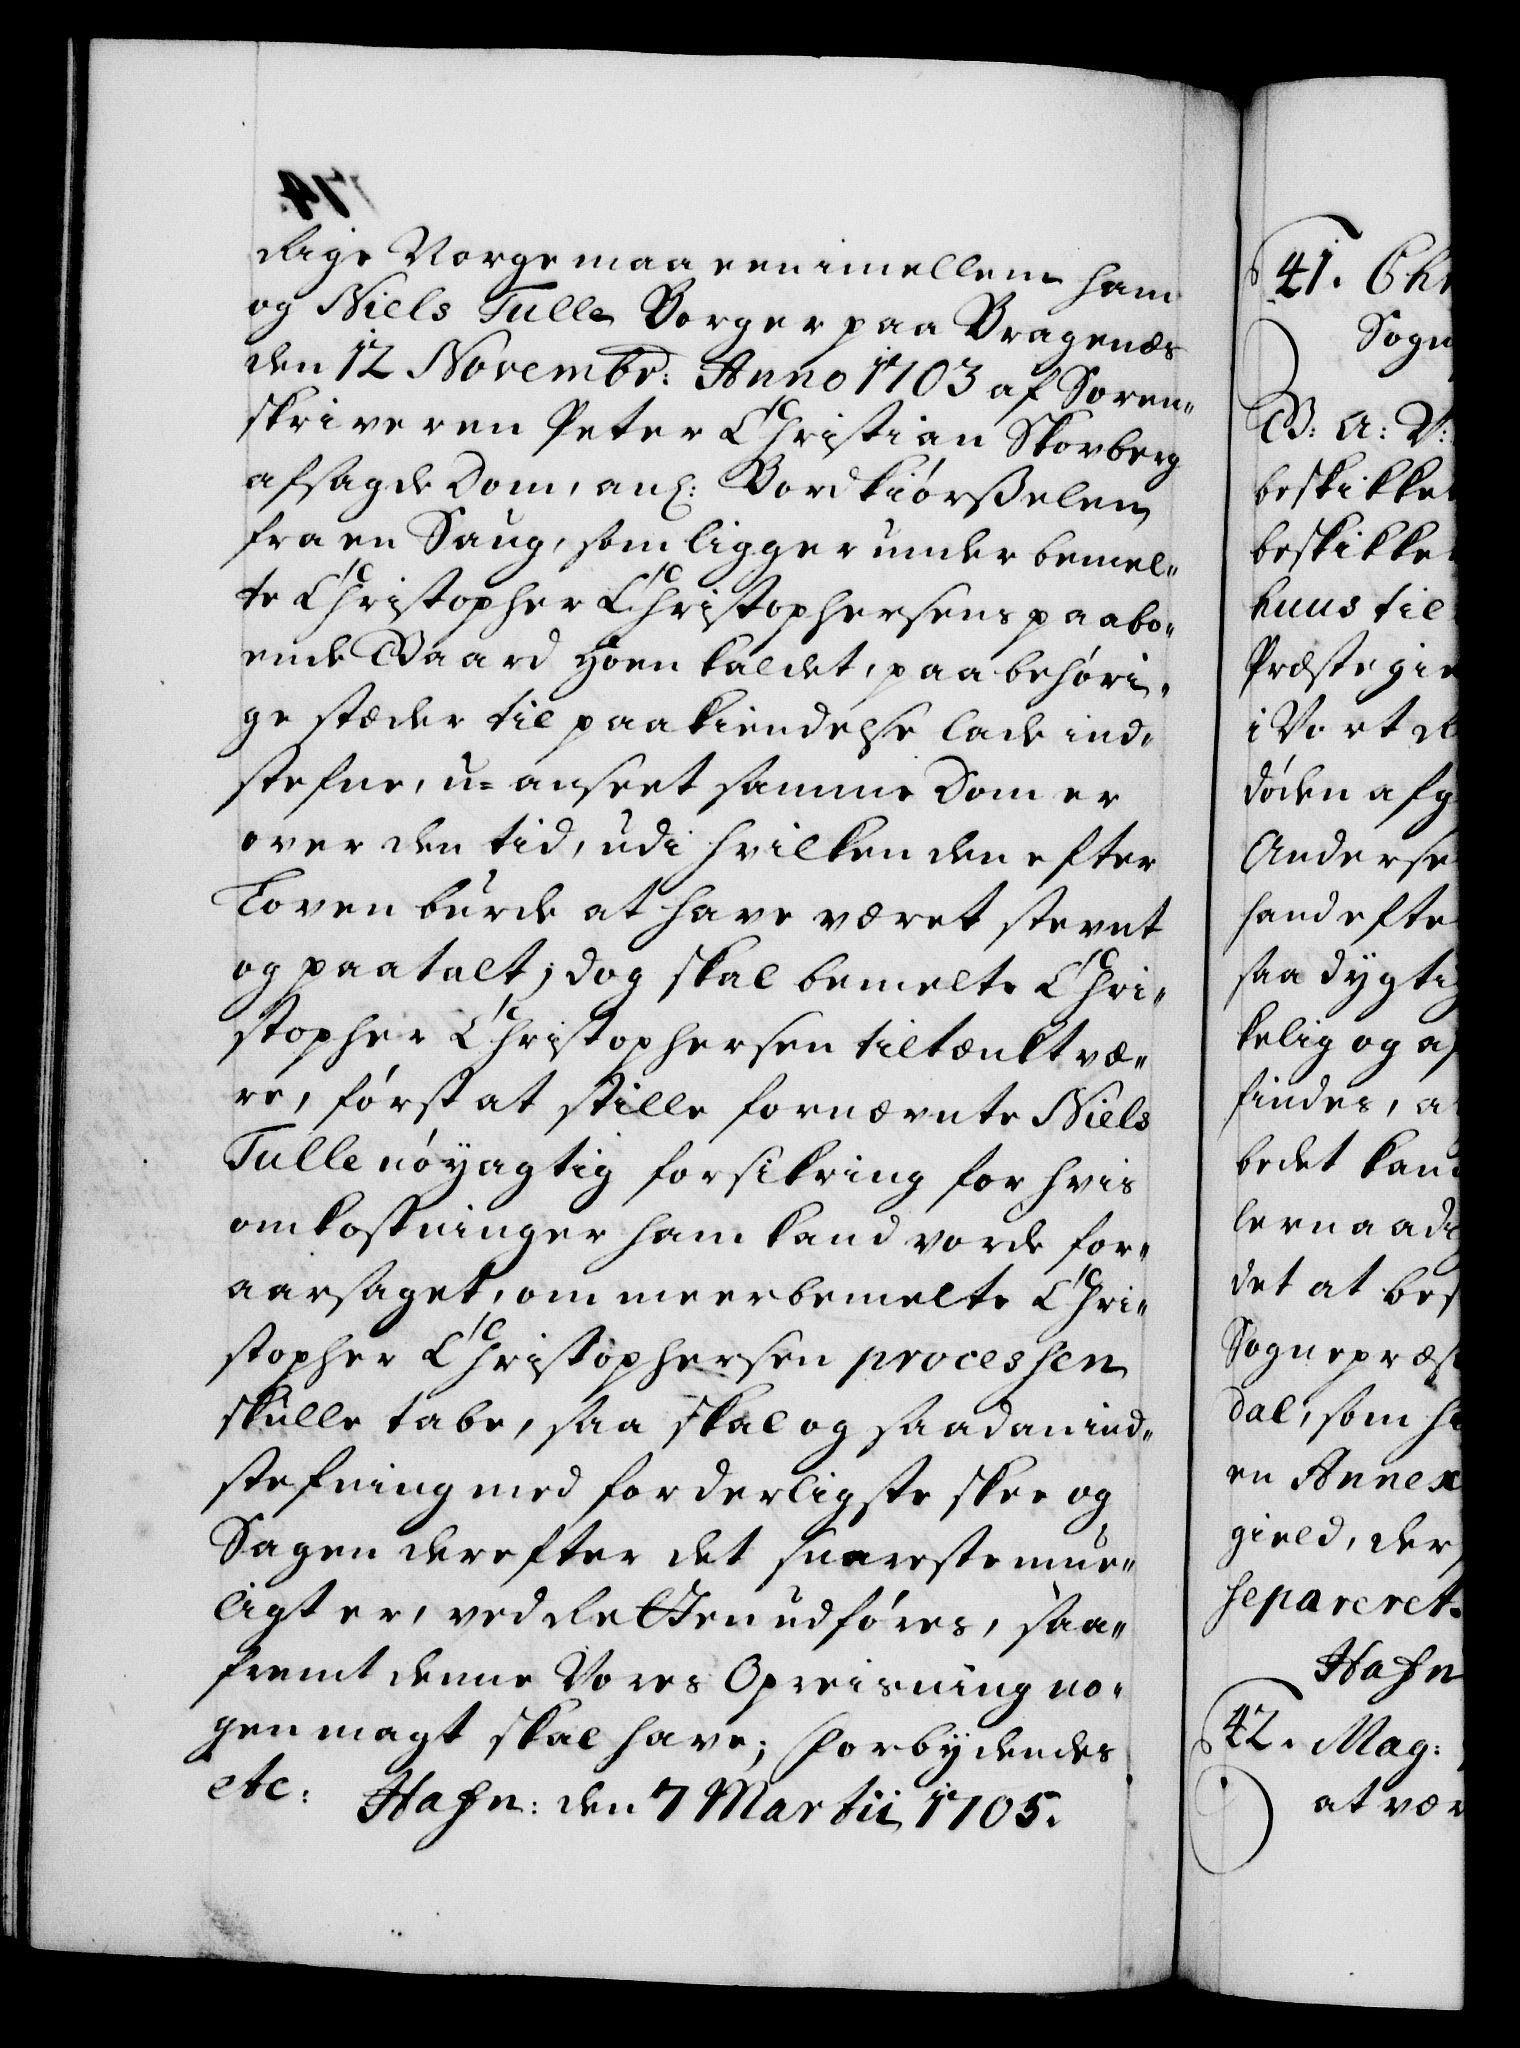 Rige Norge maa een imellem ham
og Niels Tulle Borger paa Bragenæs
den 12 Novembr: Anno 1703 af Soren-
skriveren Peter Christian Skovberg
afsagde Dom, anl: Bordkiørßelen
fra en Saug, som ligger under bemel-
te Christopher Christophersens paabo-
ende Gaard Hoen kaldet, paa behøri-
ge stæder til paakiendelse lade ind-
stefne, u-anseet samme Dom er
over den tid, udi hvilken den efter
Loven burde at have været stevnt
og paatalt; dog skal bemelte Chri-
stopher Christophersen tiltænkt væ-
re, først at stille fornævnte Niels
Tulle nøyagtig forsikring for hvis
omkostninger ham kand vorde for-
aarsaget, om meerbemelte Chri-
stopher Christophersen processen
skulle tabe, saa skal og saadan ind-
stefning med forderligste skee og
Sagen derefter det snareste mue-
ligt er, ved Retten udføres, saa-
fremt denne Vores Opreisning no-
gen magt skal have; Forbydendes
etc: Hafn: den 7 Martii 1705.
41. Chr
Sogn
G: A: V:
beskikket
beskikke
huus til
Præstegie
i Vort R
døden afg
Anderse
hand efte
saa dygtig
kelig og af
findes, a
bedet kand
lernaadi
det at bes
Sognepræs
dal, som h
en Annex
gield, der
separeret.
Hafn
42. Mag:
at vær